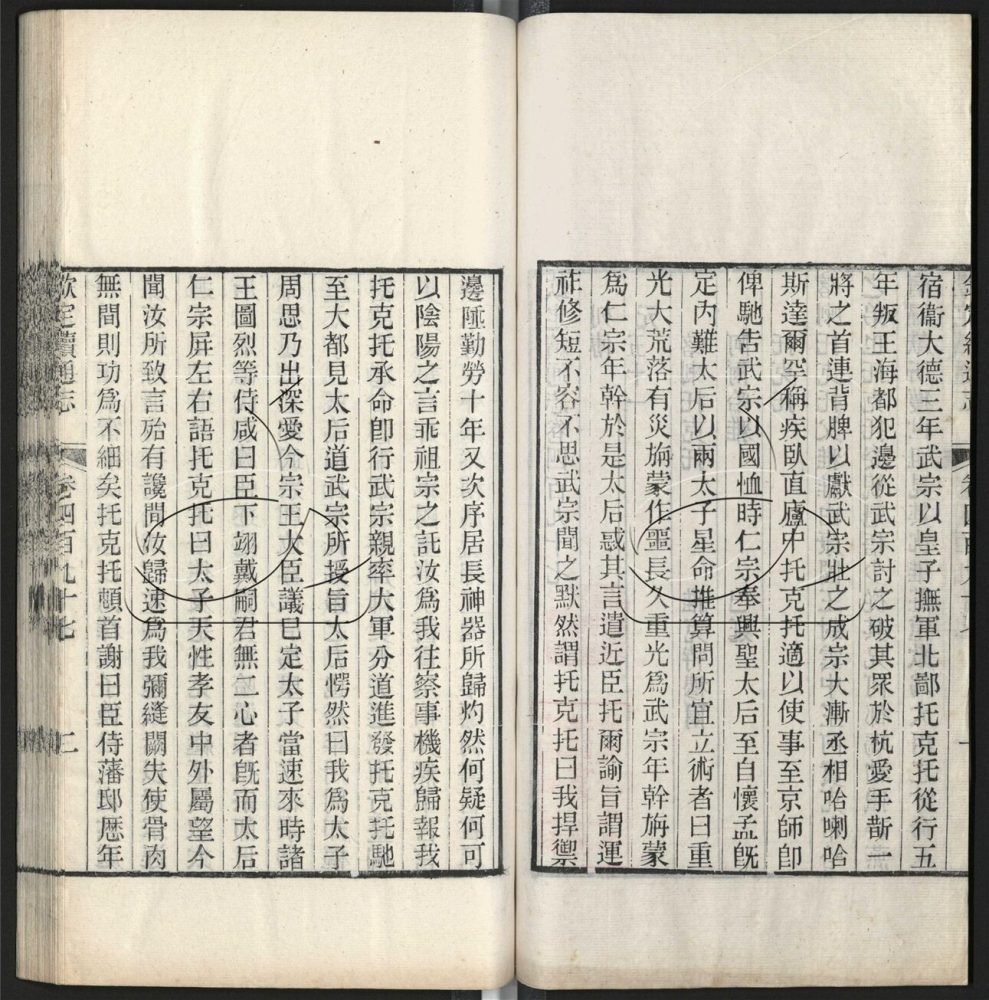 宿衞大德三年武宗以皇子撫軍北鄙托克托從行五
年叛王海都犯邊從武宗討之破其眾於杭愛手斮一
將之首連背脾以獻武宗壯之成宗大漸丞相哈喇哈
斯達爾罕稱疾臥直廬中托克托適以使事至京師卽
俾馳告武宗以國恤時仁宗奉興聖太后至自懷孟旣
定內難太后以兩太子星命推算問所宜立術者曰重
光大荒落有災旃蒙作噩長久重光爲武宗年幹旃蒙
爲仁宗年幹於是太后惑其言遣近臣托爾諭旨謂運
祚修短不容不思武宗聞之默然謂托克托曰我捍禦
邊陲勤勞十年又次序居長神器所歸灼然何疑何可
以陰陽之言乖祖宗之託汝爲我往察事機疾歸報我
托克托承命卽行武宗親率大軍分道進發托克托馳
至大都見太后道武宗所授旨太后愕然曰我爲太子
周思乃出深愛今宗王大臣議已定太子當速來時諸
王圖烈等侍咸曰臣下翊戴嗣君無二心者旣而太后
仁宗屏左右語托克托曰太子天性孝友中外屬望今
聞汝所致言殆有讒間汝歸速爲我彌縫闕失使骨肉
無間則功爲不細矣托克托頓首謝曰臣侍藩邸歷年
欽定續通志 卷四百九十七 二